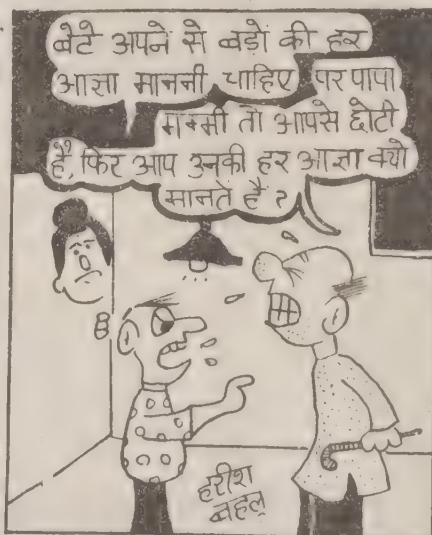 बेटे अपने से बड़ो की हर
आज्ञा माननी चाहिए पर पापा
मम्मी तो आपसे छोटी
हैं, फिर आप उनकी हर आज्ञा क्यों
मानते है ?
हरीश
बहल